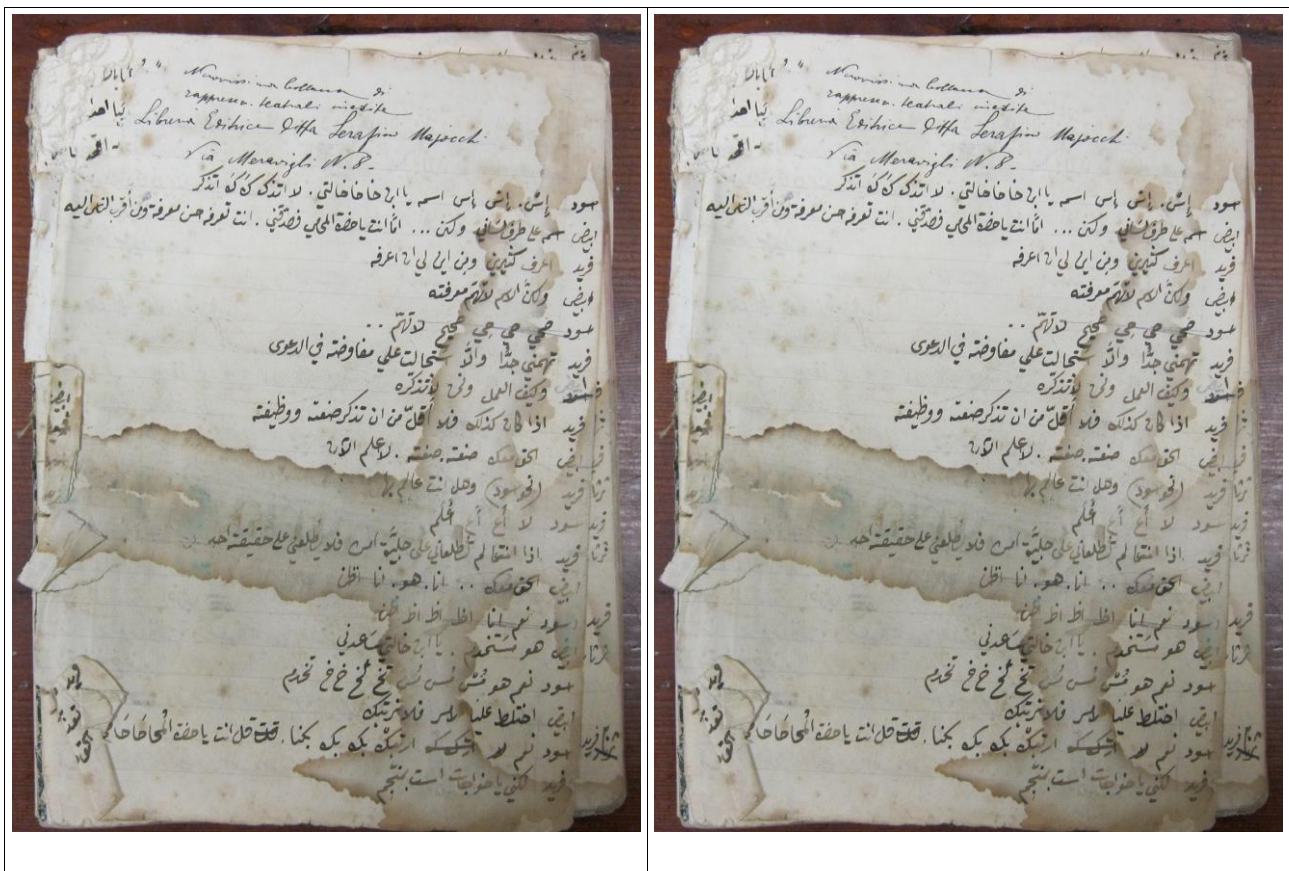 di
rappresen. teatrali inedite
Libreria Editrice Ditta Serafino Majocchi
Via Meravigli N. 8.
سود إش. إش إس اسم يا ابن خا خا خالتي. لا اتذكر كُ كُ كُ اتذكر
ابيض اسم على طرف لساني ولكن ... امَّا انت يا حضرة المحامي فصدقني. انت تعرفه حسن معرفة ومن أقرب الناس اليه
فريد اعرف كثيرين ومن اين لي ان اعرفه
ابيض ولكن الاسم لا تهم معرفته
سود صحي حي حِي صحيح لا تهمّ ..
فريد تهمني جدًّا والاَّ استحالت علي مفاوضته في الدعوى
وكيف العمل ونحن لا نتذكره
فريد اذا كان كذلك فلا أقلّ من ان تذكر صنعته ووظيفته
ابيض الحق معك صنعته. صنعته. لا اعلم الآن
فريد (نحو سود) وهل انت عالم بها
سود لا أع أع أعلم
فريد اذا انتما لم تطلعاني على جليَّة امره فلا يطلعني على حقيقته احد
ابيض الحق معك .. انا. هو. انا اظن
سود نعم انا اظ اظ اظ اظن
ابيض هو مستخدم. يا ابن خالتي ساعدني
سود نعم هو مُسْ مُس مُس تخ تخ خ خ تخدم
ابيض اختلط علينا الامر فلا نرتبك
سود نعم لا ارتبكْ بك بك بك بكنا. قل انت يا حضرة المُحا حَا حَا
فريد لكني يا خواجات لست بمنجّم